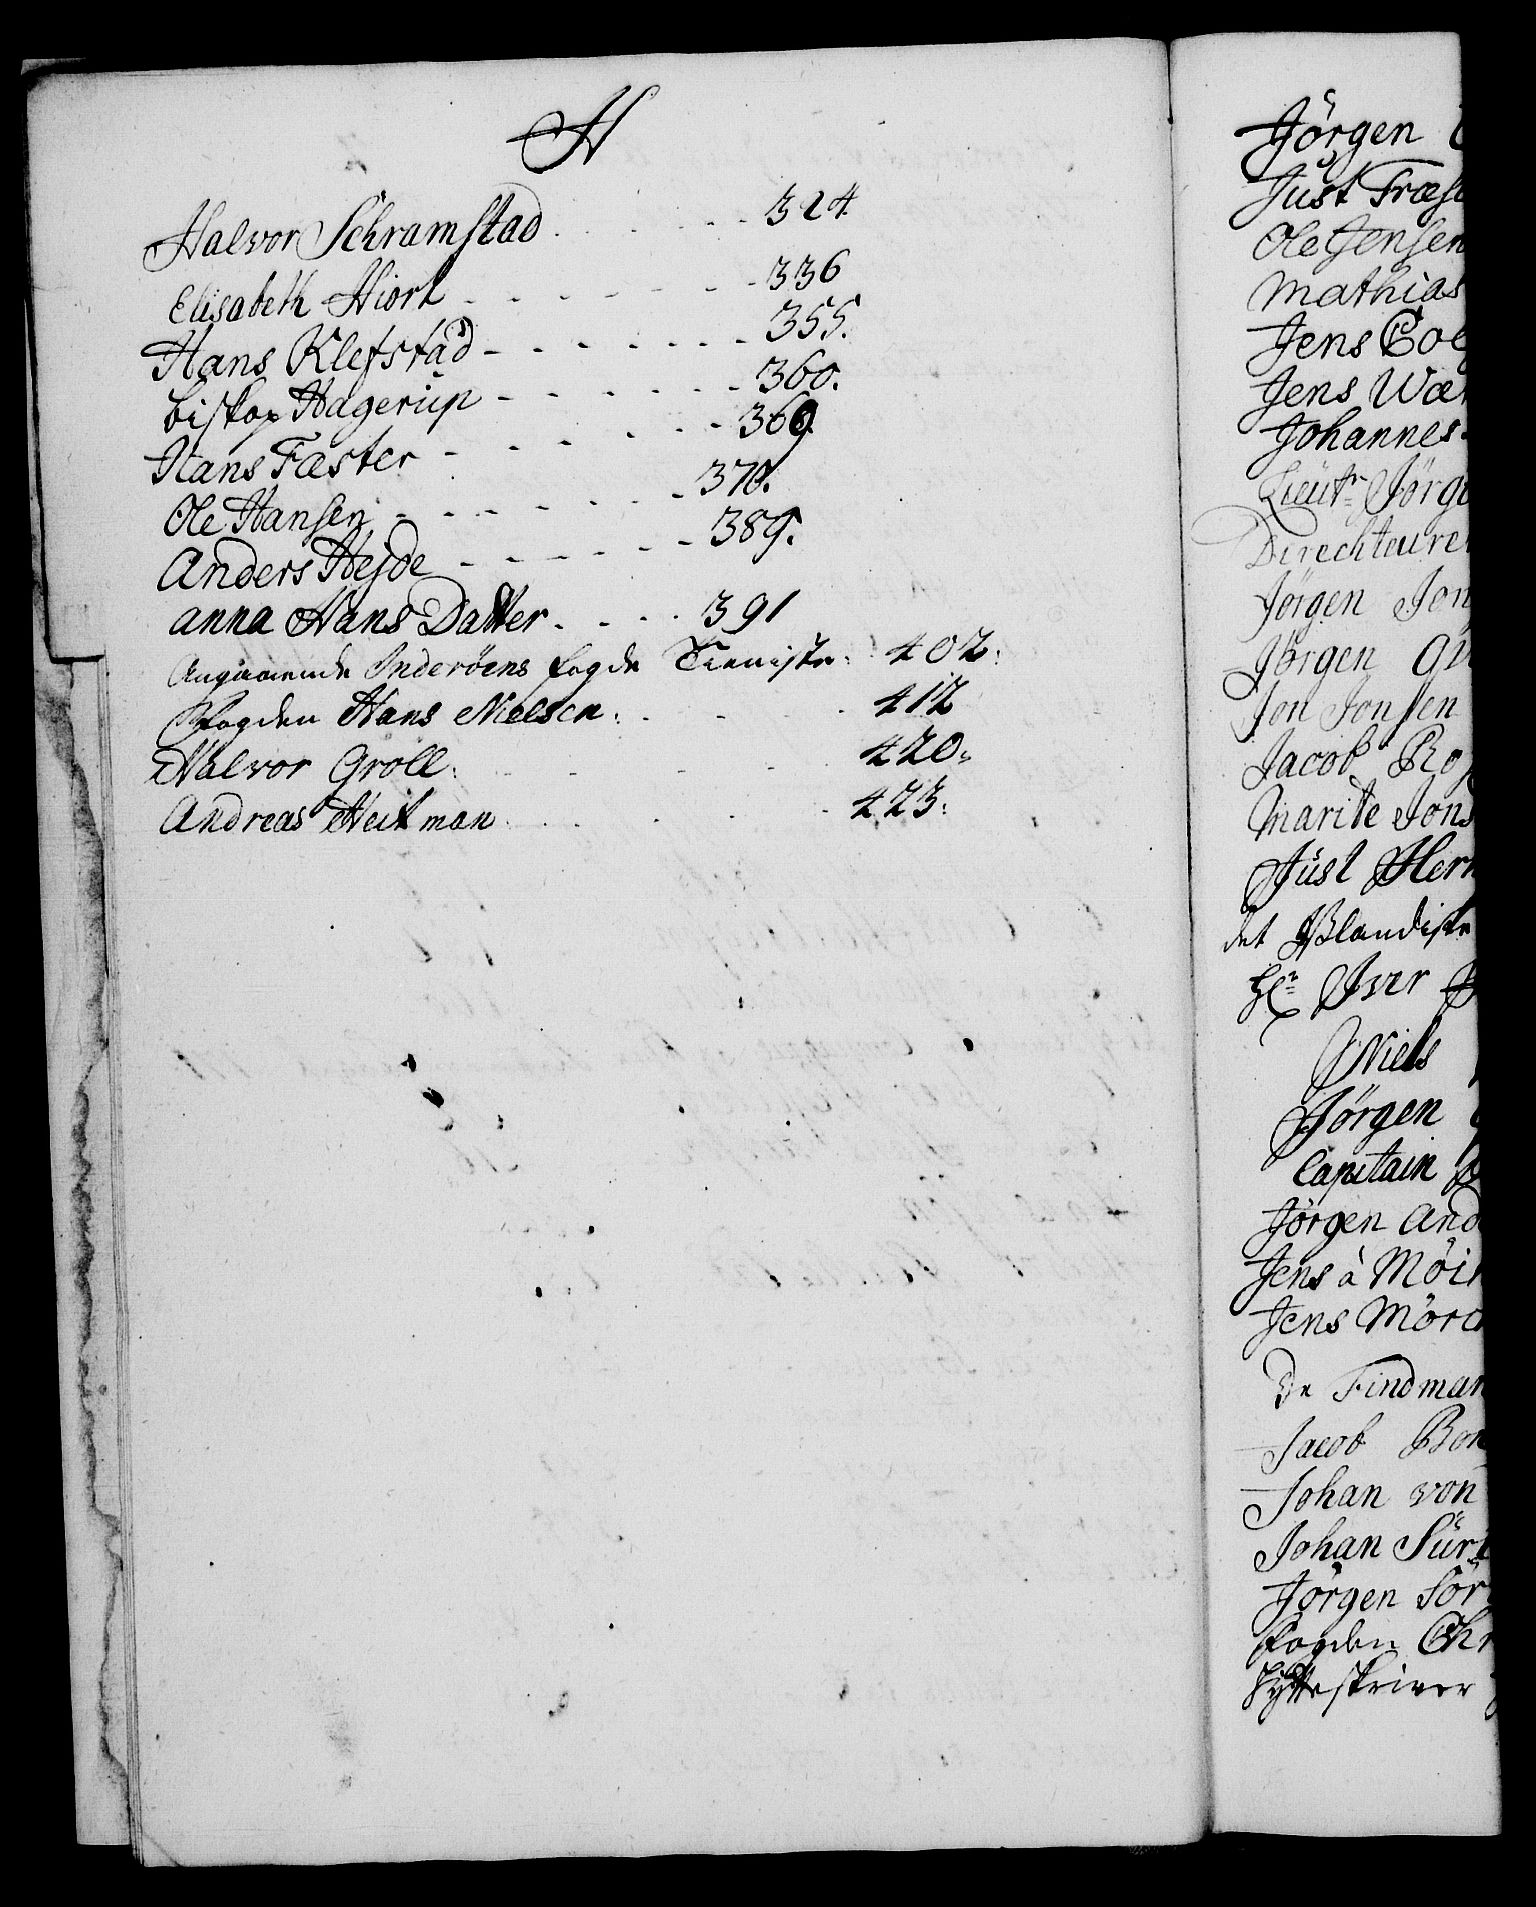 H
Halvor Schramstad . . . . . 324.
Elisabeth Hiort - - - - - - - 336
Hans Klefstad - - - - - - - 355.
biskop Hagerüp - - - - - - 360.
Hans Fæster - - - - - - 369.
Ole Hansen - - - - - - 370.
Anders Hejde - - - - - - 389.
anna Hans Datter . . . . 391
Angaaende Inderöens fogde Tieniste: 402:
Fogden Hans Nielsen: . . . . 412
Halvor Groll: . . . . . 420:
Andreas Heitman . . . . . 423:
Jörgen
Just Fræst
Ole Jensen
Mathias
Jens Coe
Jens Wær
Johannes
Lieutn: Jörge
Direchteuren
Jörgen Jon
Jörgen
Jon Jonsen
Jacob
Marite Jons
Jüst Herm
det Islandiske
Hr: Iver
Niels
Jörgen
Capitain
Jörgen And
Jens à Möin
Jens Mörch
De Findman
Jacob Bon
Johan von
Johan
Jörgen Sör
Fogden Chr
Hytteskriver